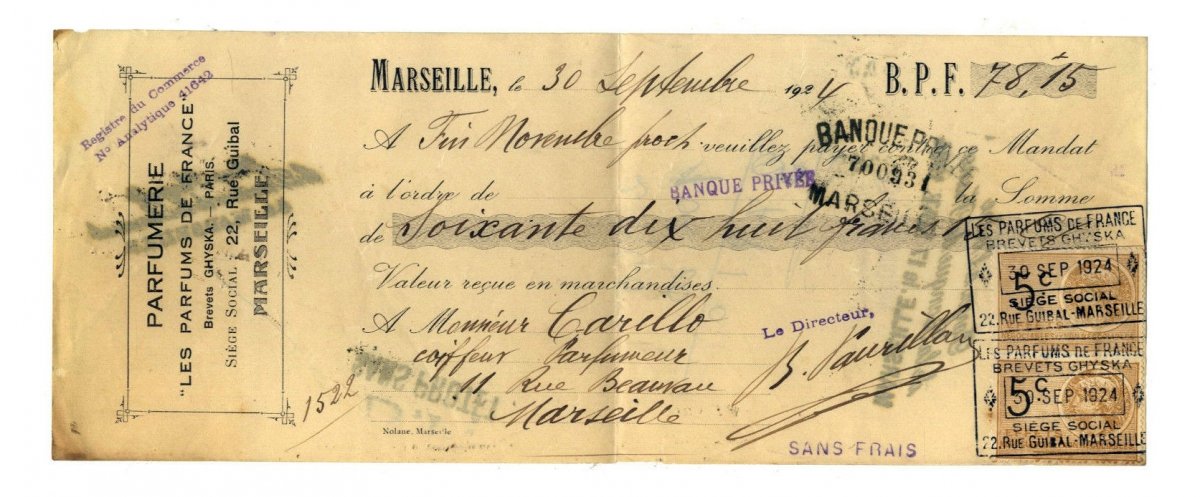 Registre du Commerce
No Analytique 41642
PARFUMERIE
"LES PARFUMS DE FRANCE"
Brevets GHYSKA.— PARIS.
SIÈGE SOCIAL 22, Rue Guibal
MARSEILLE
MARSEILLE, le 30 Septembre 1924 B.P.F. 78,15
A Fin Novembre proch veuillez payer contre ce Mandat
BANQUE
700931
MARSEI
à l'ordre de BANQUE PRIVÉE la Somme
de Soixante dix huit francs
Valeur reçue en marchandises.
A Monsieur Carillo
coiffeur Parfumeur
11 Rue Beauvau
Marseille
1522
Le Directeur,
SANS FRAIS
Nolane, Marseille
LES PARFUMS DE FRANCE
BREVETS GHYSKA
30 SEP 1924
5c
SIÈGE SOCIAL
22.RUE GUIBAL-MARSEILLE
LES PARFUMS DE FRANCE
BREVETS GHYSKA
5c
30 SEP 1924
SIÈGE SOCIAL
22.RUE GUIBAL-MARSEILLE